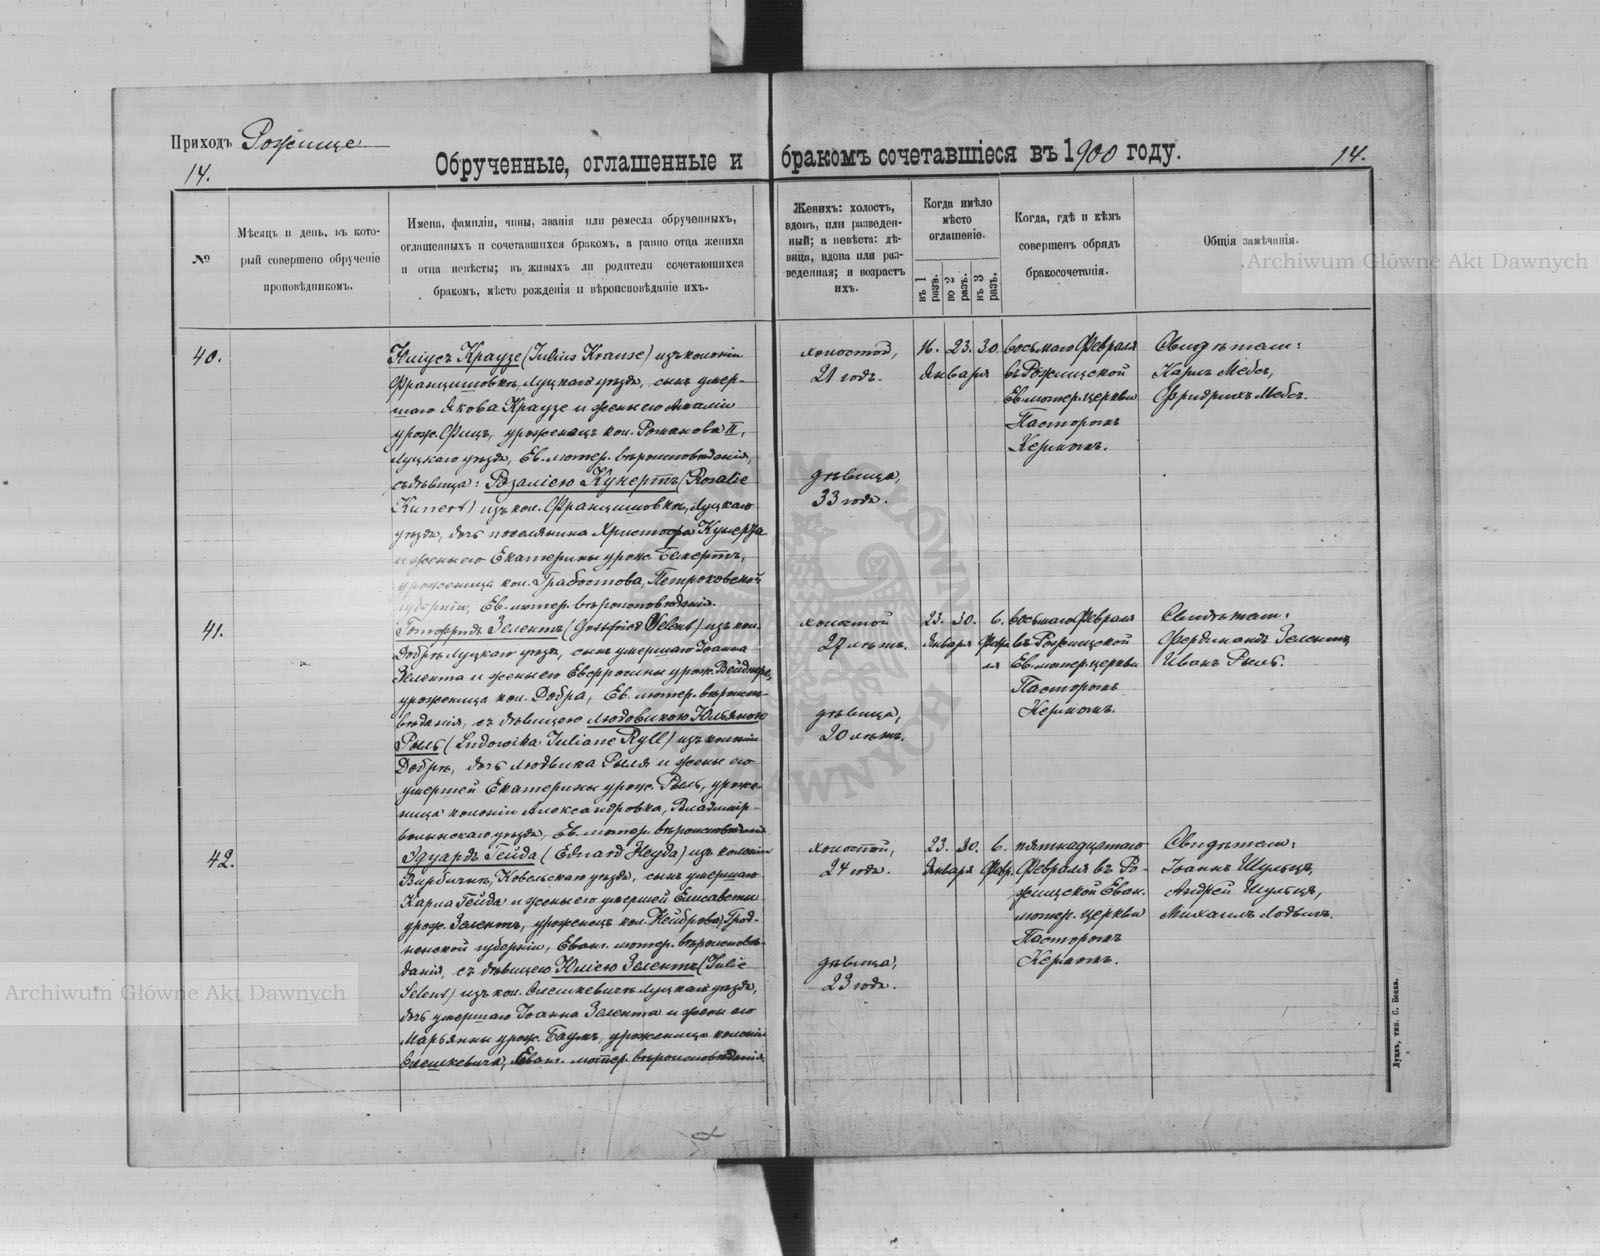 Приходъ Рожище
14.
Обрученные, оглашенные и бракомъ сочетавшіеся въ 1900 году.
14.
№
Мѣсяцъ и день, въ кото-
рый совершено обрученіе
проповѣдникомъ.
Имена, фамиліи, чины, званія или ремесла обрученныхъ,
оглашенныхъ и сочетавшихся бракомъ, а равно отца жениха
и отца невѣсты; въ живыхъ ли родители сочетающихся
бракомъ, мѣсто рожденія и вѣроисповѣданіе ихъ.
Женихъ: холостъ,
вдовъ, или разведен-
ный; а невѣста: дѣ-
вица, вдова или раз-
веденная; и возрастъ
ихъ.
Когда имѣло
мѣсто
оглашеніе.
въ 1 разъ.
во 2 разъ.
въ 3 разъ.
Когда, гдѣ и кѣмъ
совершенъ обрядъ
бракосочетанія.
Общія замѣчанія.
40.
Юліусъ Краузе (Julius Krause) изъ колоніи
Францишовка, Луцкаго уѣзда, сынъ умер-
шаго Якова Краузе и жены его Амаліи
урож. Фицъ, уроженецъ кол. Романова II,
Луцкаго уѣзда, Ев. лютер. вѣроисповѣданія,
съ дѣвица: Розаліею Кунертъ (Rosalie
Kunert) изъ кол. Францишовка, Луцкаго
уѣзда, дочь поселянина Христофа Кунерта
и жены его Екатерины урож. Бекертъ,
уроженица кол. Грабостова, Петроковской
губерніи, Ев. лютер. вѣроисповѣданія.
холостой,
21 годъ.
дѣвица,
33 года.
16. 23. 30.
Января
восьмого Февраля
въ Рожищской
Ев. лютер. церкви
Пасторомъ
Кермомъ.
Свидѣтели:
Карлъ Мебсъ,
Фридрихъ Мебсъ.
41.
Готфридъ Зелентъ (Gottfried Selent) изъ кол.
Добра Луцкаго уѣзда, сынъ умершаго Іоанна
Зелента и жены его Евфросины урож. Вейднеръ,
уроженецъ кол. Добра, Ев. лютер. вѣроиспо-
вѣданія, съ дѣвицею Людовикою Юльяною
Рыль (Ludowika Juliane Ryll) изъ колоніи
Добра, дочь Людвика Рыля и жены его
умершей Екатерины урож. Рыль, уроже-
ница колоніи Александровка, Владимір-
волынскаго уѣзда, Ев. лютер. вѣроисповѣданія.
холостой
27 лѣтъ.
дѣвица,
20 лѣтъ.
23. 30. 6.
Января Февра
ля
восьмого Февраля
въ Рожищской
Ев. лютер. церкви
Пасторомъ
Кермомъ.
Свидѣтели:
Фердинандъ Зелентъ,
Иванъ Рыль.
42.
Эдуардъ Гейда (Eduard Heyda) изъ колоніи
Вирбична, Ковельскаго уѣзда, сынъ умершаго
Карла Гейда и жены его умершей Елисаветы
урож. Зелентъ, уроженецъ кол. Нейброва, Грод-
ненской губерніи, Еванг. лютер. вѣроисповѣ-
данія, съ дѣвицею Юліею Зелентъ (Julie
Selent) изъ кол. Олешкевичъ Луцкаго уѣзда,
дочь умершаго Іоанна Зелента и жены его
Марьянны урож. Баумъ, уроженица колоніи
Олешкевича, Еванг. лютер. вѣроисповѣданія.
холостой,
24 года.
дѣвица,
23 года.
23. 30. 6.
Января Февр.
пятнадцатаго
Февраля въ Ро-
жищской Еван.
лютер. церкви
Пасторомъ
Кермомъ.
Свидѣтели:
Іоаннъ Шульцъ,
Андрей Шульцъ,
Михаилъ Лодвигъ.
Луцкъ, тип. С. Бокка.
Archiwum Główne Akt Dawnych
Archiwum Główne Akt Dawnych